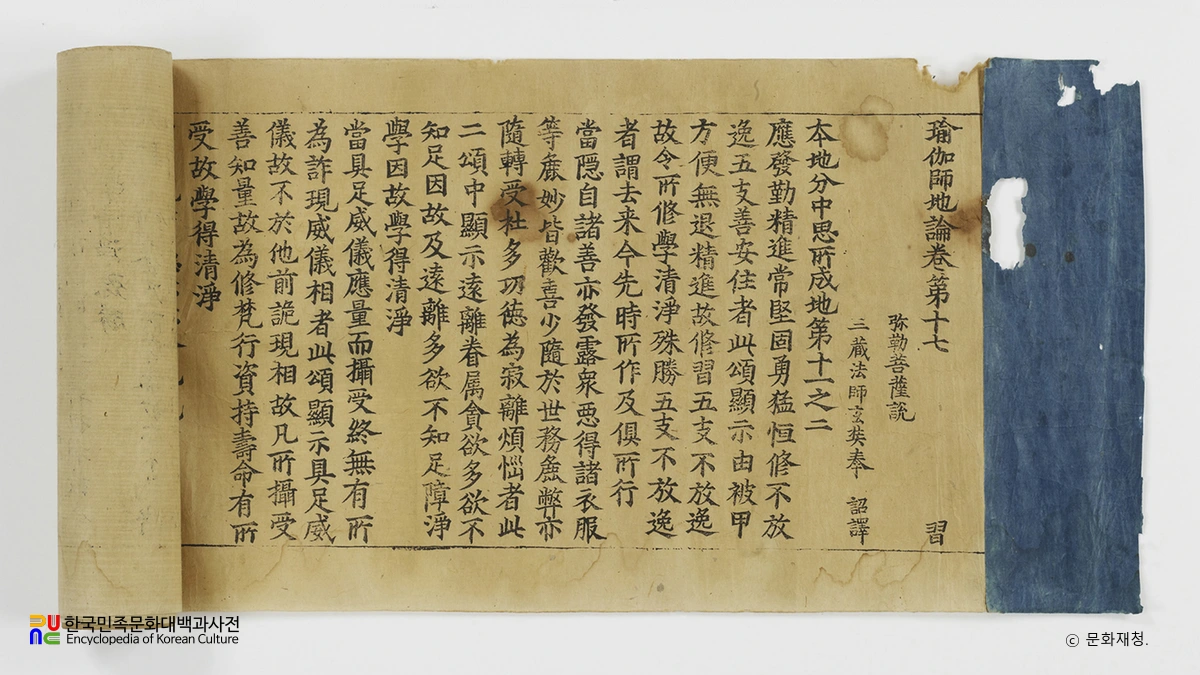 瑜伽師地論卷第十七 習
弥勒菩薩說
三藏法師玄奘奉 詔譯
本地分中思所成地第十一之二
應發勤精進常堅固勇猛恒修不放
逸五支善安住者此頌顯示由被甲
方便無退精進故修習五支不放逸
故令所修學清淨殊勝五支不放逸
者謂去来今先時所作及俱所行
當隱自諸善亦發露衆惡得諸衣服
等麁妙皆歡喜少隨於世務麁弊亦
隨轉受杜多功德為寂離煩惱者此
二頌中顯示遠離眷属貪欲多欲不
知足因故及遠離多欲不知足障淨
學因故學得清淨
當具足威儀應量而攝受終無有所
為詐現威儀相者此頌顯示具足威
儀故不於他前詭現相故凡所攝受
善知量故為修梵行資持壽命有所
受故學得清淨
한국민족문화대백과사전
Encyclopedia of Korean Culture
ⓒ 문화재청.